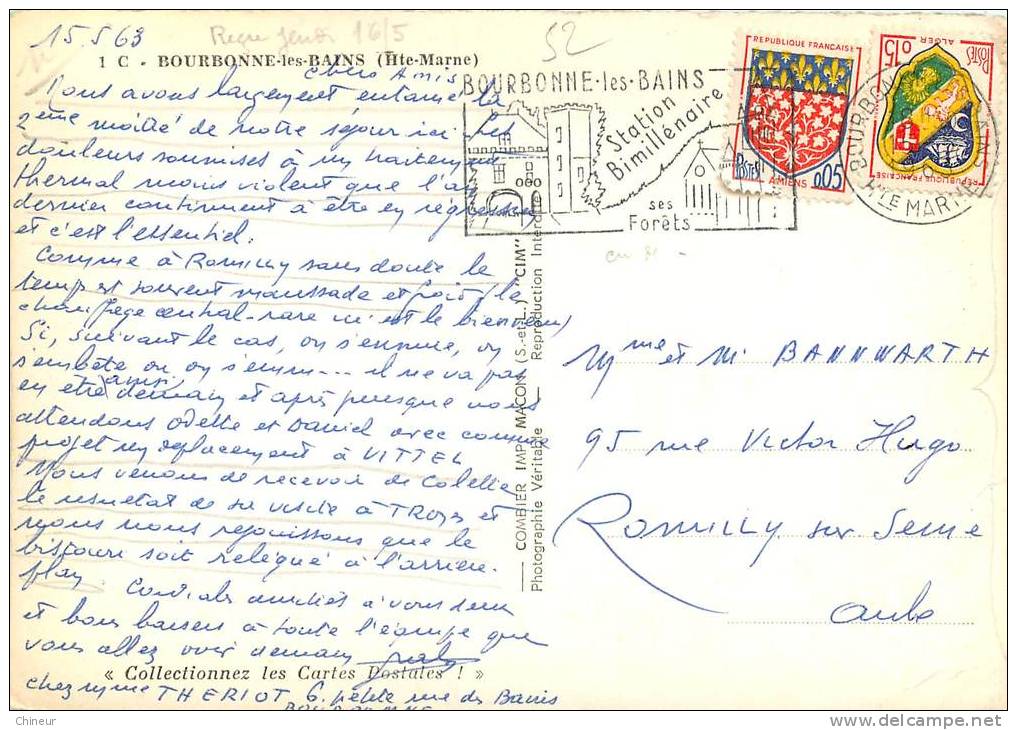 15.5.63
Reçue Jeudi 16/5
52
1 C - BOURBONNE-les-BAINS (Hte-Marne)
chers Amis
Nous avons largement entamé la
2ème moitié de notre séjour ici. Les
douleurs soumises à un traitement
thermal moins violent que l'an
dernier continuent à être en régression
et c'est l'essentiel.
Comme à Romilly sans doute le
temps est souvent maussade et froid (le
chauffage central - rare ici - est le bienvenu)
Si, suivant le cas, on s'ennuie, on
s'embête ou on s'emm... il ne va pas
en être ainsi demain et après puisque nous
attendons Odette et Daniel avec comme
projet un déplacement à VITTEL
Nous venons de recevoir de Colette
le résultat de sa visite à Troyes et
nous nous réjouissons que le
bistouri soit relégué à l'arrière
plan.
Cordiales amitiés à vous deux
et bons baisers à toute l'équipe que
vous allez voir demain
« Collectionnez les Cartes Postales ! »
chez Mme THERIOT 6. petite rue des Bains
BOURBONNE
COMBIER IMP. MACON (S.-et-L.) "CIM"
Photographie Véritable — Reproduction Interdite
BOURBONNE-les-BAINS
Station
Bimillénaire
ses
Forêts
REPUBLIQUE FRANCAISE
POSTES
AMIENS
0,05
ALGER
0,15
POSTES
REPUBLIQUE FRANCAISE
BOURBONNE
HTE MARNE
Mme et M. BANNWARTH
95 rue Victor Hugo
Romilly sur Seine
Aube
Chineur
delcampe.net